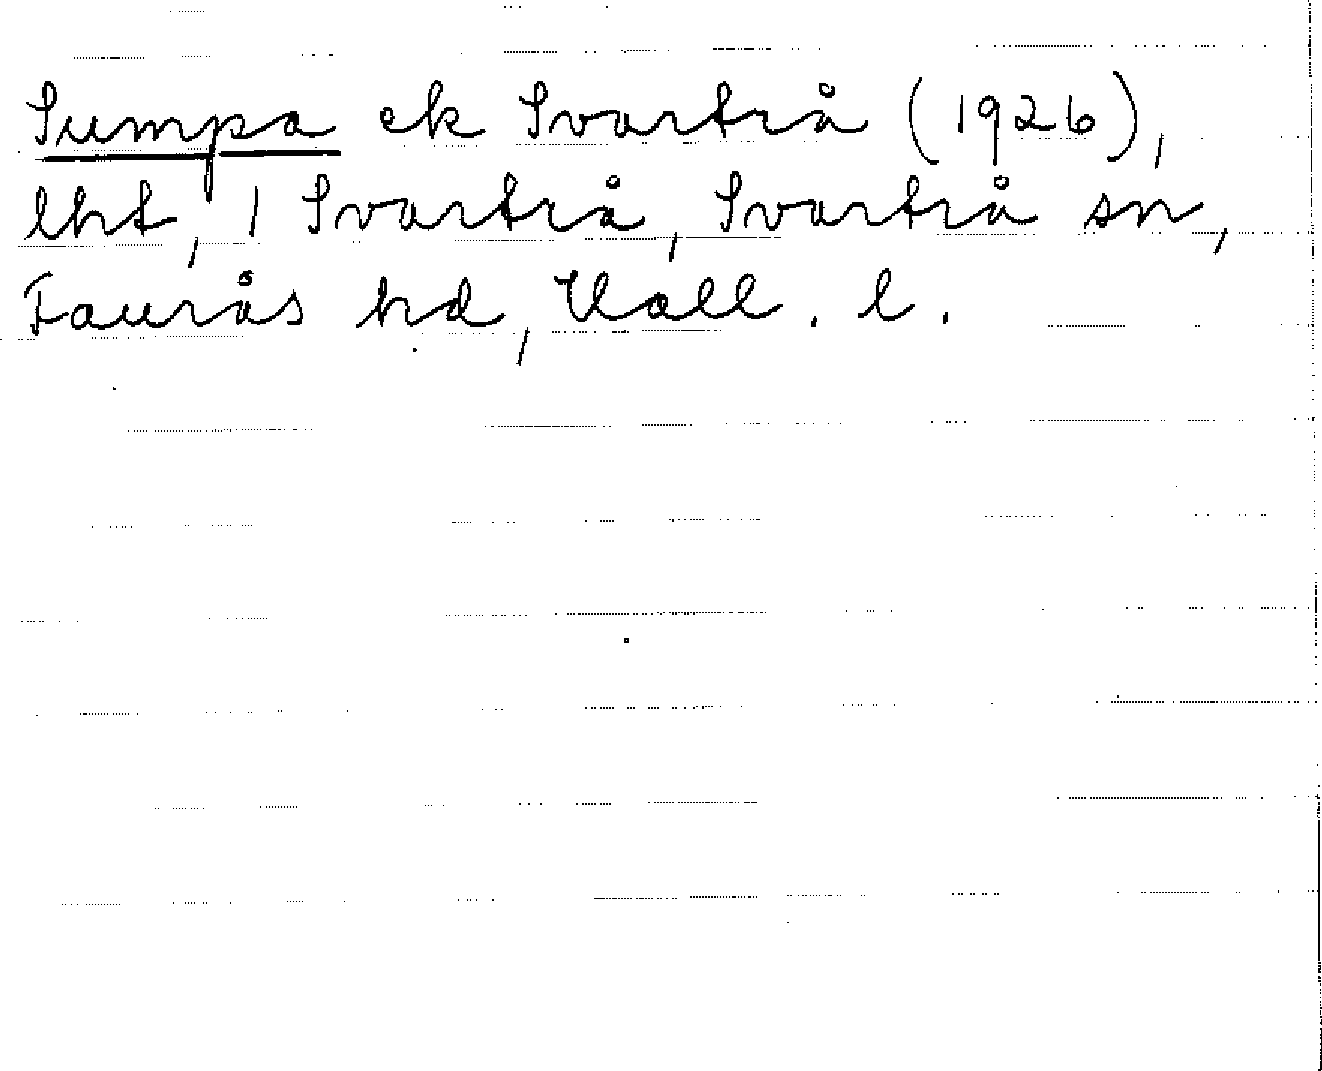 Sumpa ek Svartrå (1926),
lht, 1 Svartrå, Svartrå sn,
Faurås hd, Hall. l.